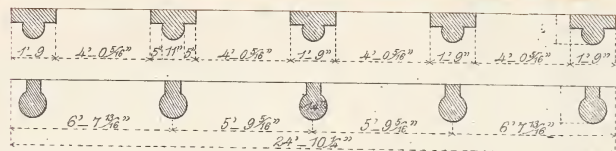 1'-9 4'-0 5/16" 5" 11" 5" 4'-0 5/16" 1'-9" 4'-0 5/16" 1'-9" 4'-0 5/16" 1'-9"
6'-7 13/16" 5'-9 5/16" 5'-9 5/16" 6'-7 13/16"
24'-10 1/4"